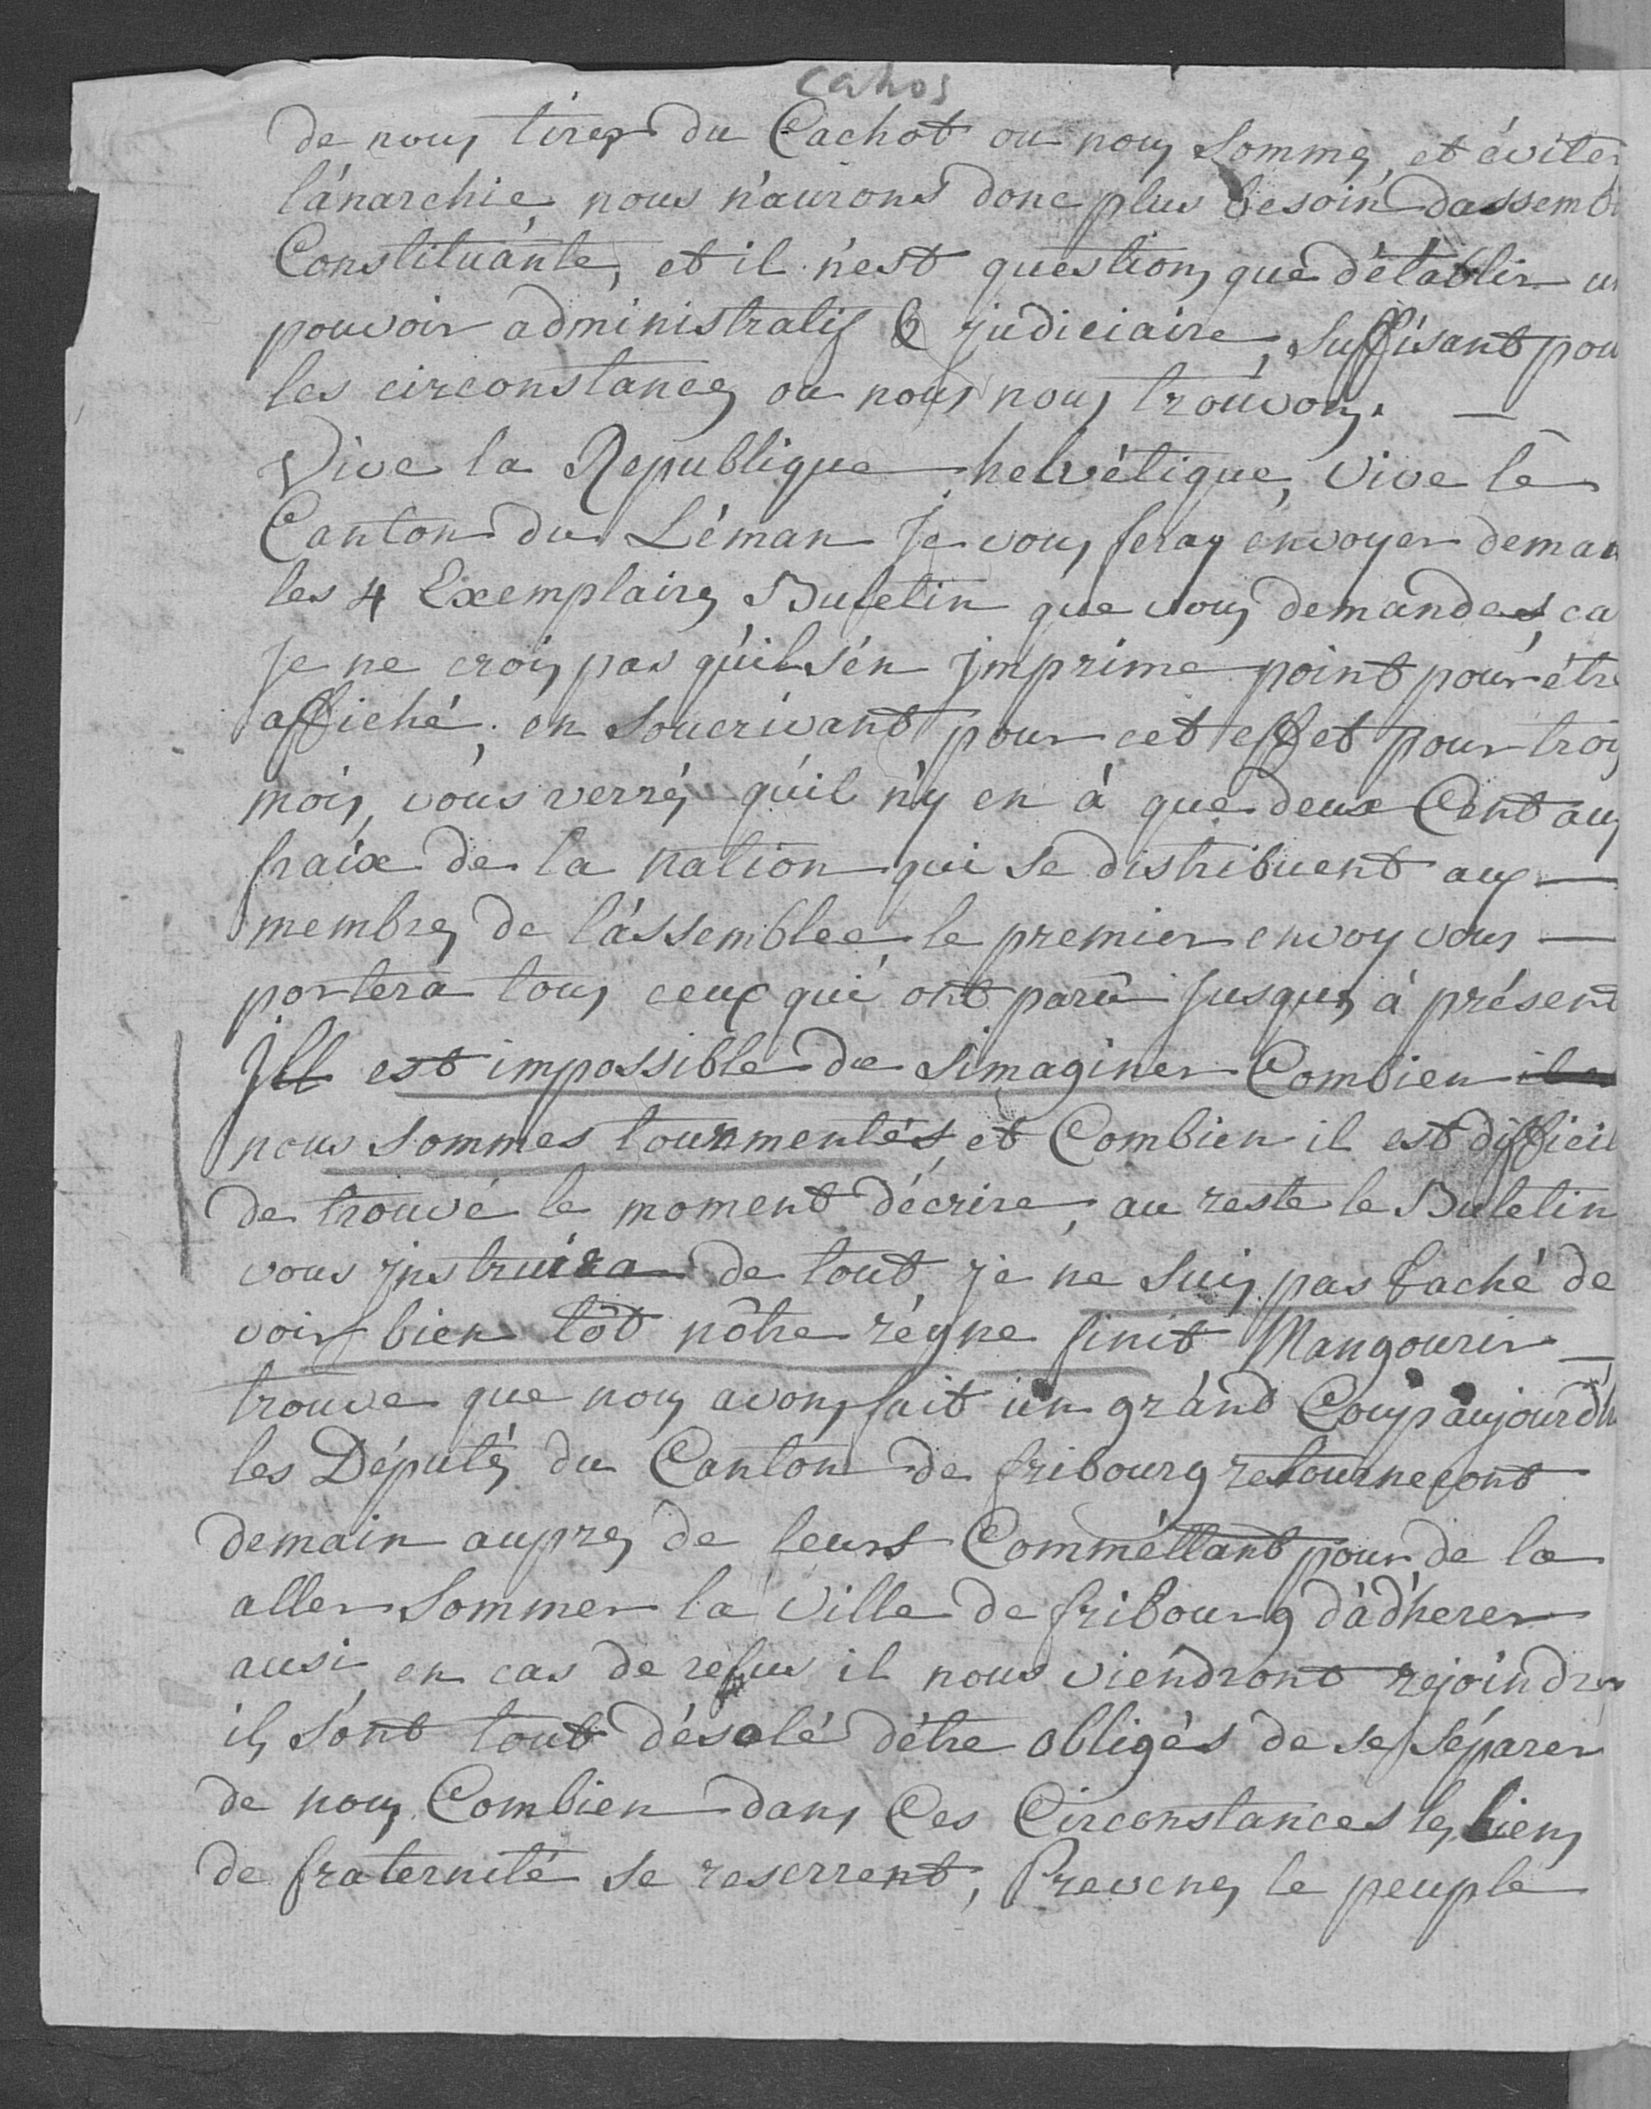 cahos
de nous tirer du Cachot ou nous sommes, et éviter
l'anarchie, nous n'aurons donc plus besoin dassemb
Constituante, et il n'est question, que d'établir un
pouvoir administratif & judiciaire, suffisant pou
les circonstances ou nous nous trouvons. —
Vive la Republique helvétique, vive le
Canton du Léman Je vous feray envoyer demai
les 4 Exemplaires Buletin que vous demandes ca
Je ne crois pas qu'il s'én jmprime point pour étre
affiché, en soucrivant pour cet effet pour trois
mois, vous verrés qu'il n'y en à que deux Cent aux
fraix de la nation qui se distribuent aux —
membres de l'assemblee, le premier envoy vous —
portera tous ceux qui ont parû jusques à présent
Jll est impossible de simaginer Combien
nous sommes tourmentés, et Combien il est difficil
de trouvé le moment décrire, au reste le Buletin
vous jnstruira de tout, je ne suis pas faché de
voir bien tôt nôtre régne finit Mangourir —
trouve que nous avons fait un grand Coup aujourdh
les Députés du Canton de fribourg retourneront
demain aupres de leurs Comméttant pour de la
aller sommer la ville de fribourg d'adherer
ausi, en cas de refus il nous viendront rejoindre
ils sont tout désolé détre obligés de se séparer
de nous Combien dans Ces Circonstances les liens
de fraternité se reserrent, Prevenes le peuple